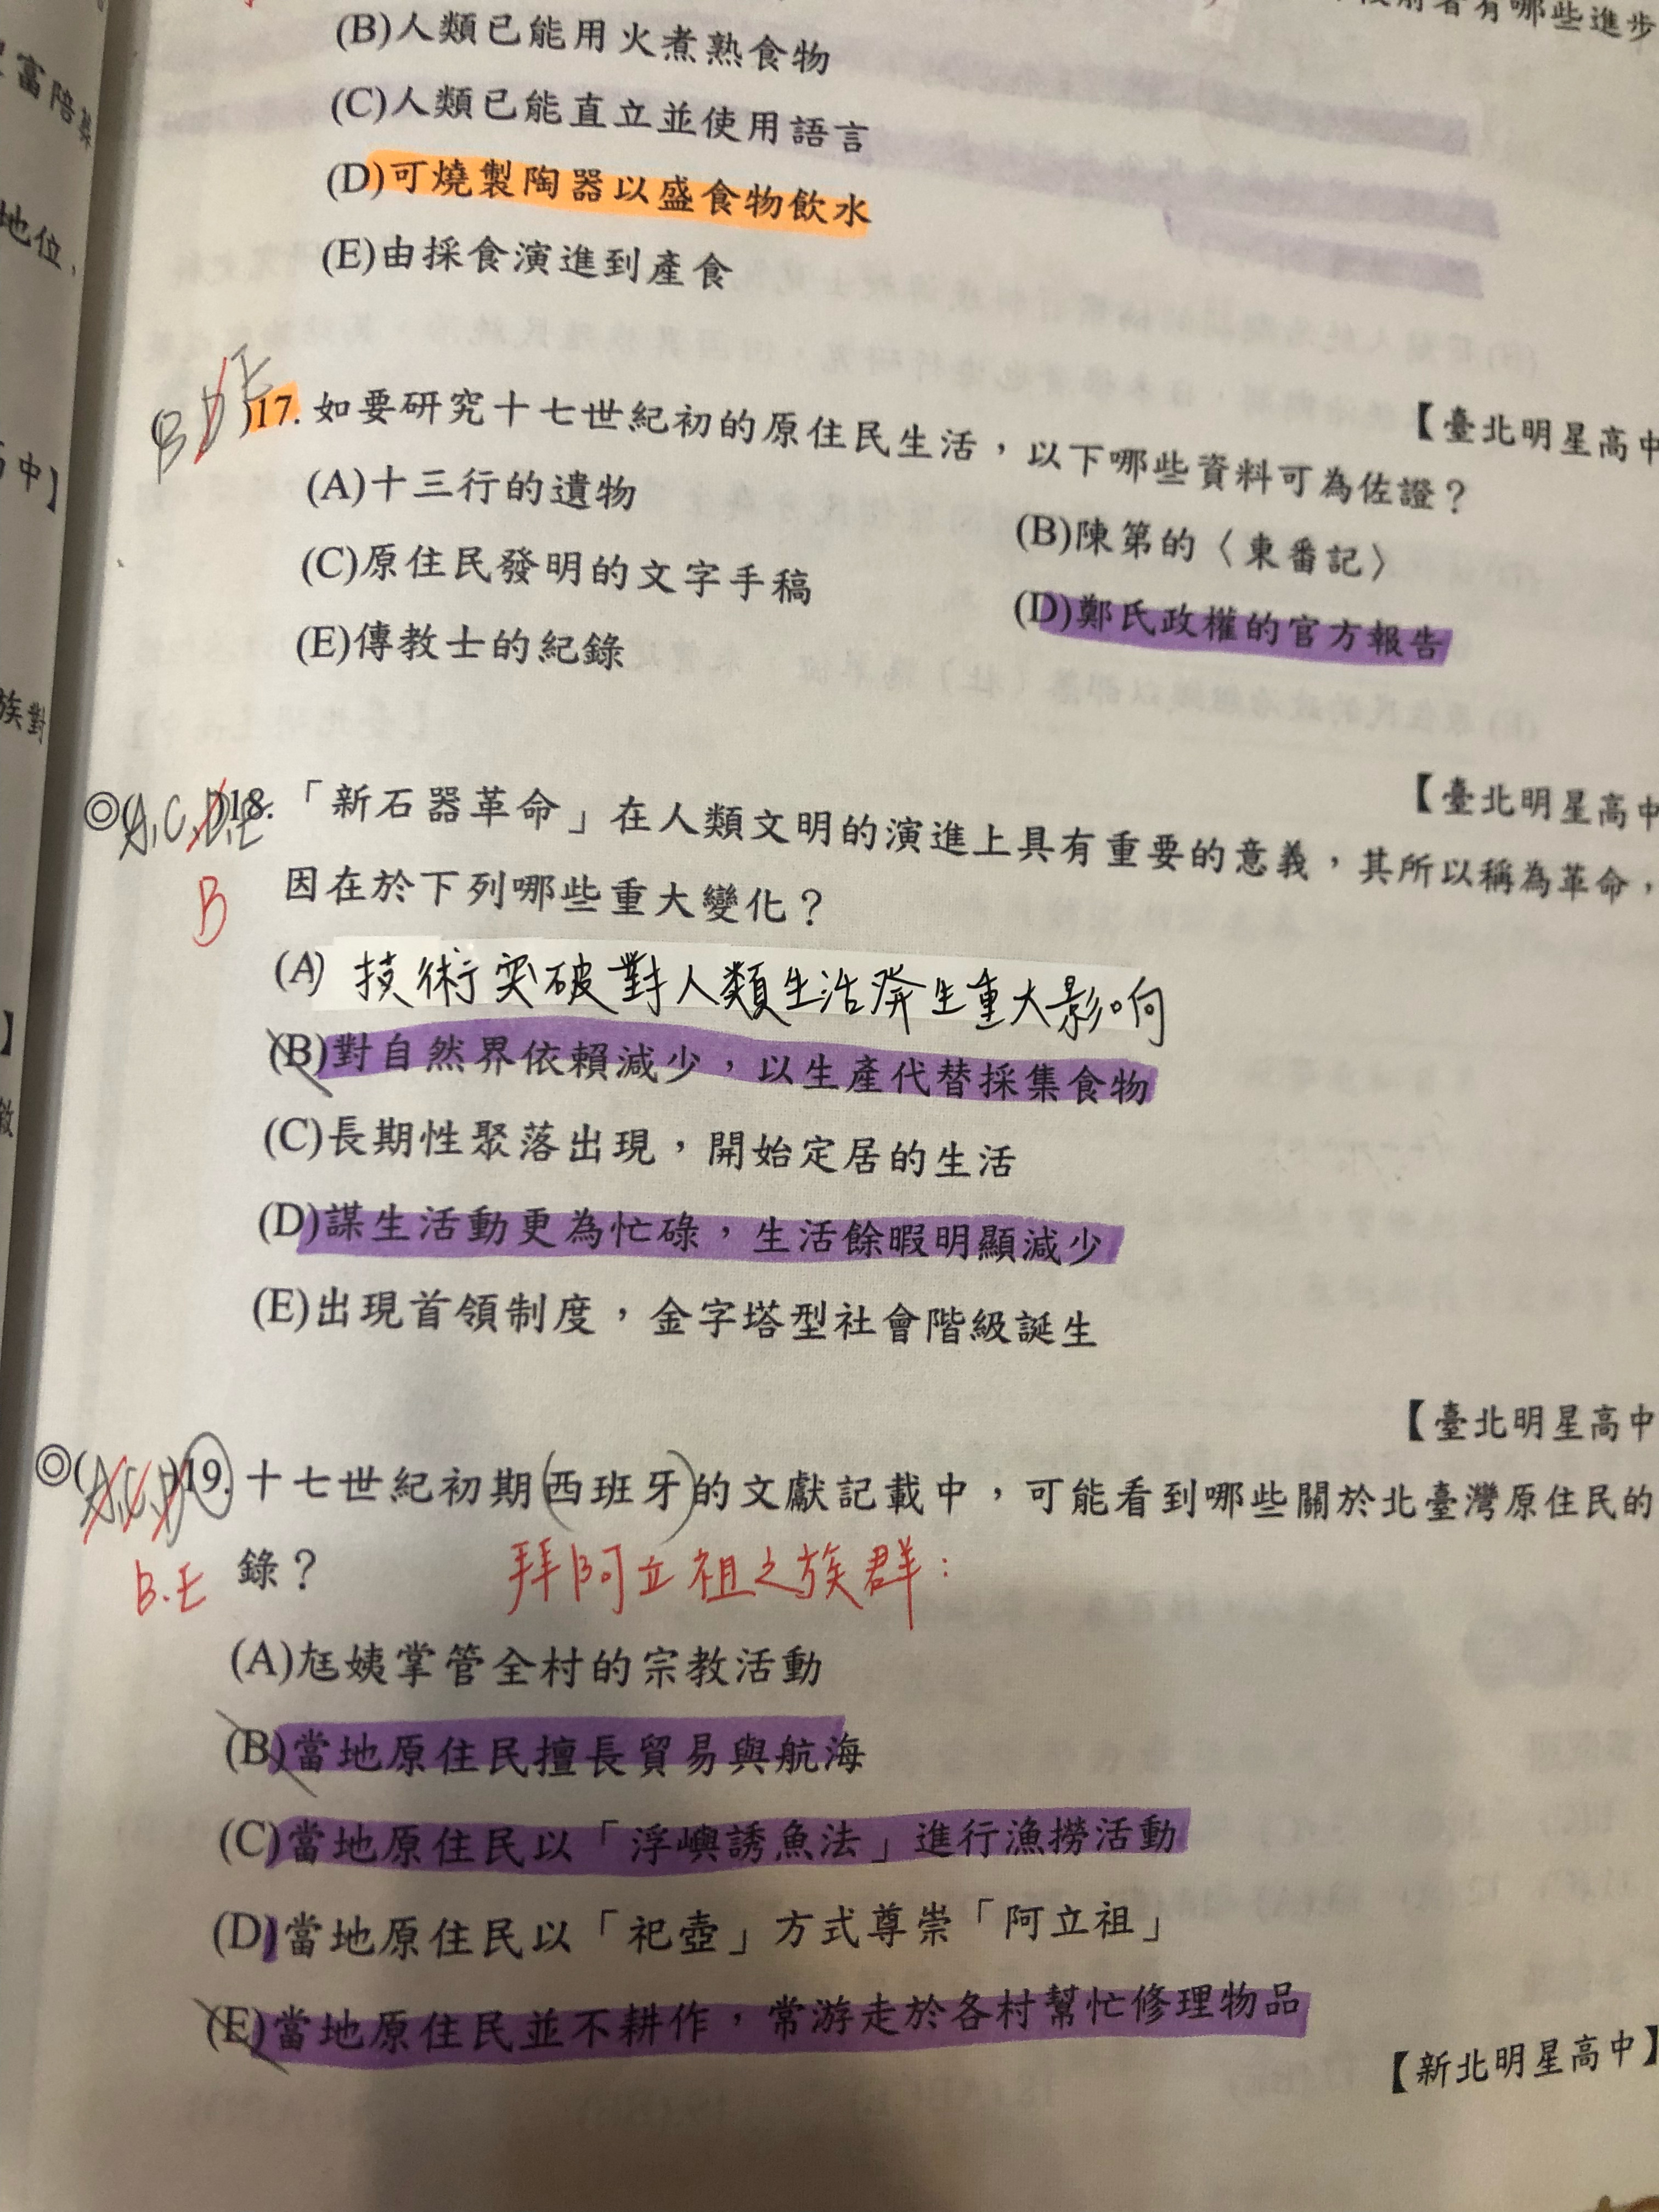 前者有哪些進步
(B)人類已能用火煮熟食物
(C)人類已能直立並使用語言
(D)可燒製陶器以盛食物飲水
(E)由採食演進到產食
【臺北明星高中
B D E )17. 如要研究十七世紀初的原住民生活，以下哪些資料可為佐證？
(A)十三行的遺物
(B)陳第的〈東番記〉
(C)原住民發明的文字手稿
(D)鄭氏政權的官方報告
(E)傳教士的紀錄
【臺北明星高中
◎(A,C,D,E)18. 「新石器革命」在人類文明的演進上具有重要的意義，其所以稱為革命，
B
因在於下列哪些重大變化？
(A) 技術突破對人類生活發生重大影响
(B)對自然界依賴減少，以生產代替採集食物
(C)長期性聚落出現，開始定居的生活
(D)謀生活動更為忙碌，生活餘暇明顯減少
(E)出現首領制度，金字塔型社會階級誕生
【臺北明星高中
◎(A,C,D)19. 十七世紀初期(西班牙)的文獻記載中，可能看到哪些關於北臺灣原住民的
B.E 錄？ 拜阿立祖之族群：
(A)尪姨掌管全村的宗教活動
(B)當地原住民擅長貿易與航海
(C)當地原住民以「浮嶼誘魚法」進行漁撈活動
(D)當地原住民以「祀壺」方式尊崇「阿立祖」
(E)當地原住民並不耕作，常游走於各村幫忙修理物品
【新北明星高中】
富陪葬
地位，
中】
族對
】